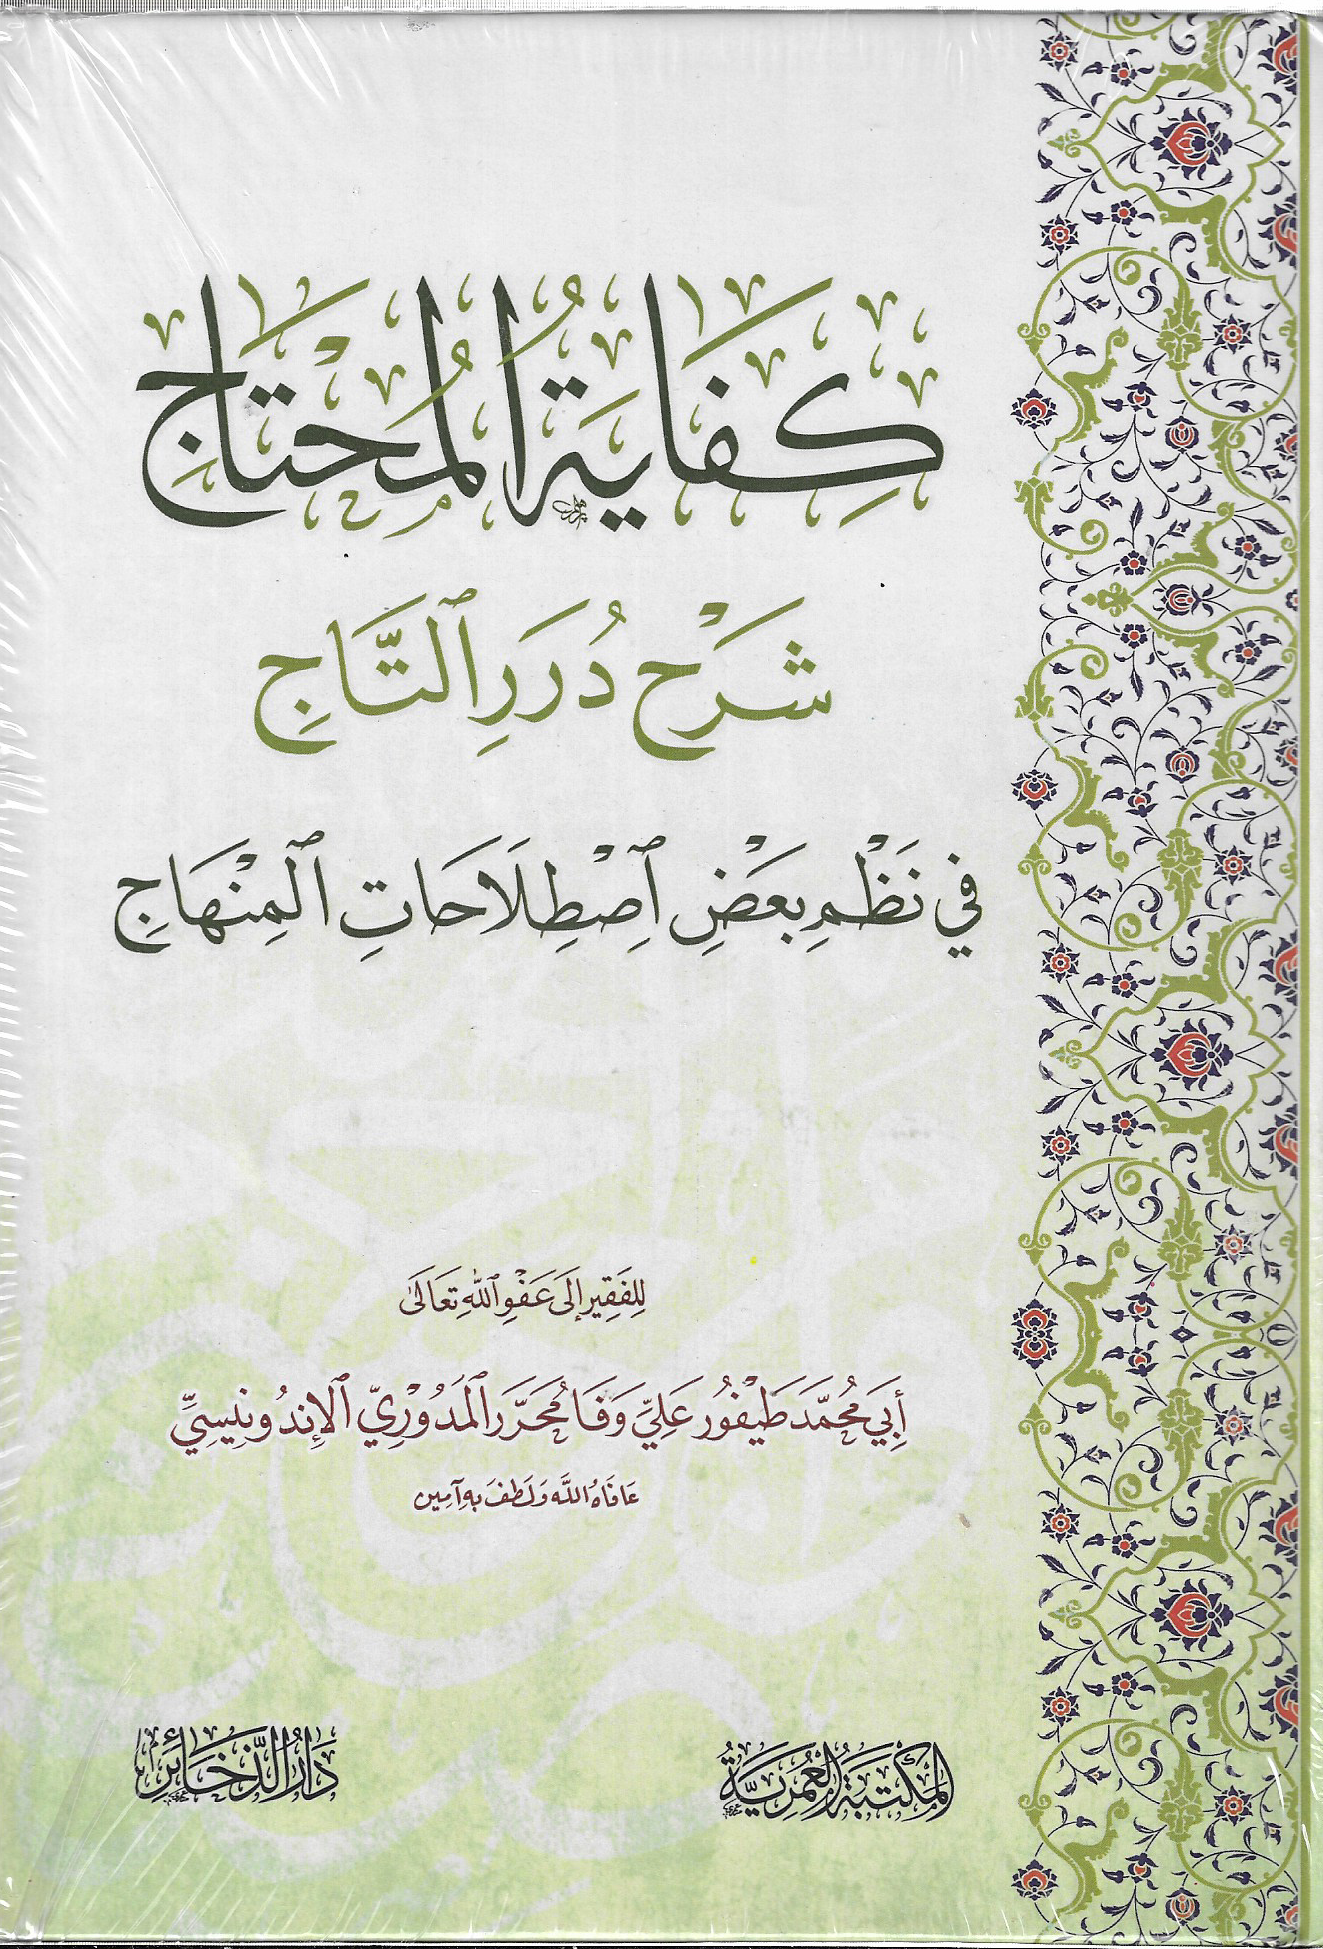 كِفَايَةُ الْمُحْتَاجِ
شَرْحُ دُرَرِ ٱلتَّاجِ
فِي نَظْمِ بَعْضِ ٱصْطِلَاحَاتِ ٱلْمِنْهَاجِ
لِلفَقِيرِ إِلَى عَفْوِ ٱللهِ تَعَالَى
أَبِي مُحَمَّد طَيْفُور عَلِيّ وَفَا مُحَرَّر ٱلْمَدُوْرِيّ ٱلإِندُونِيسِيِّ
عَافَاهُ اللَّه وَلَطفَ بِهِ آمِين
المَكْتَبَةُ العُمَرِيَّةُ
دَارُ الذَّخَائِرِ